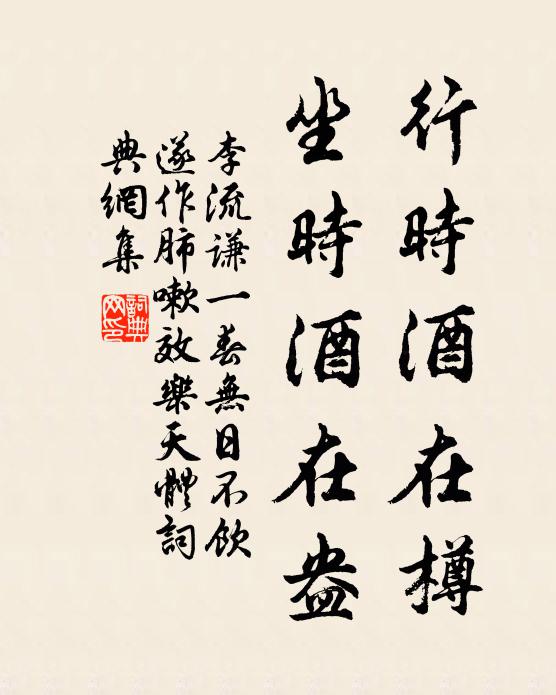 行時酒在樽
坐時酒在盎
李流謙一春無日不飲
遂作肺嗽效樂天體詞
典網集
詞典
网印